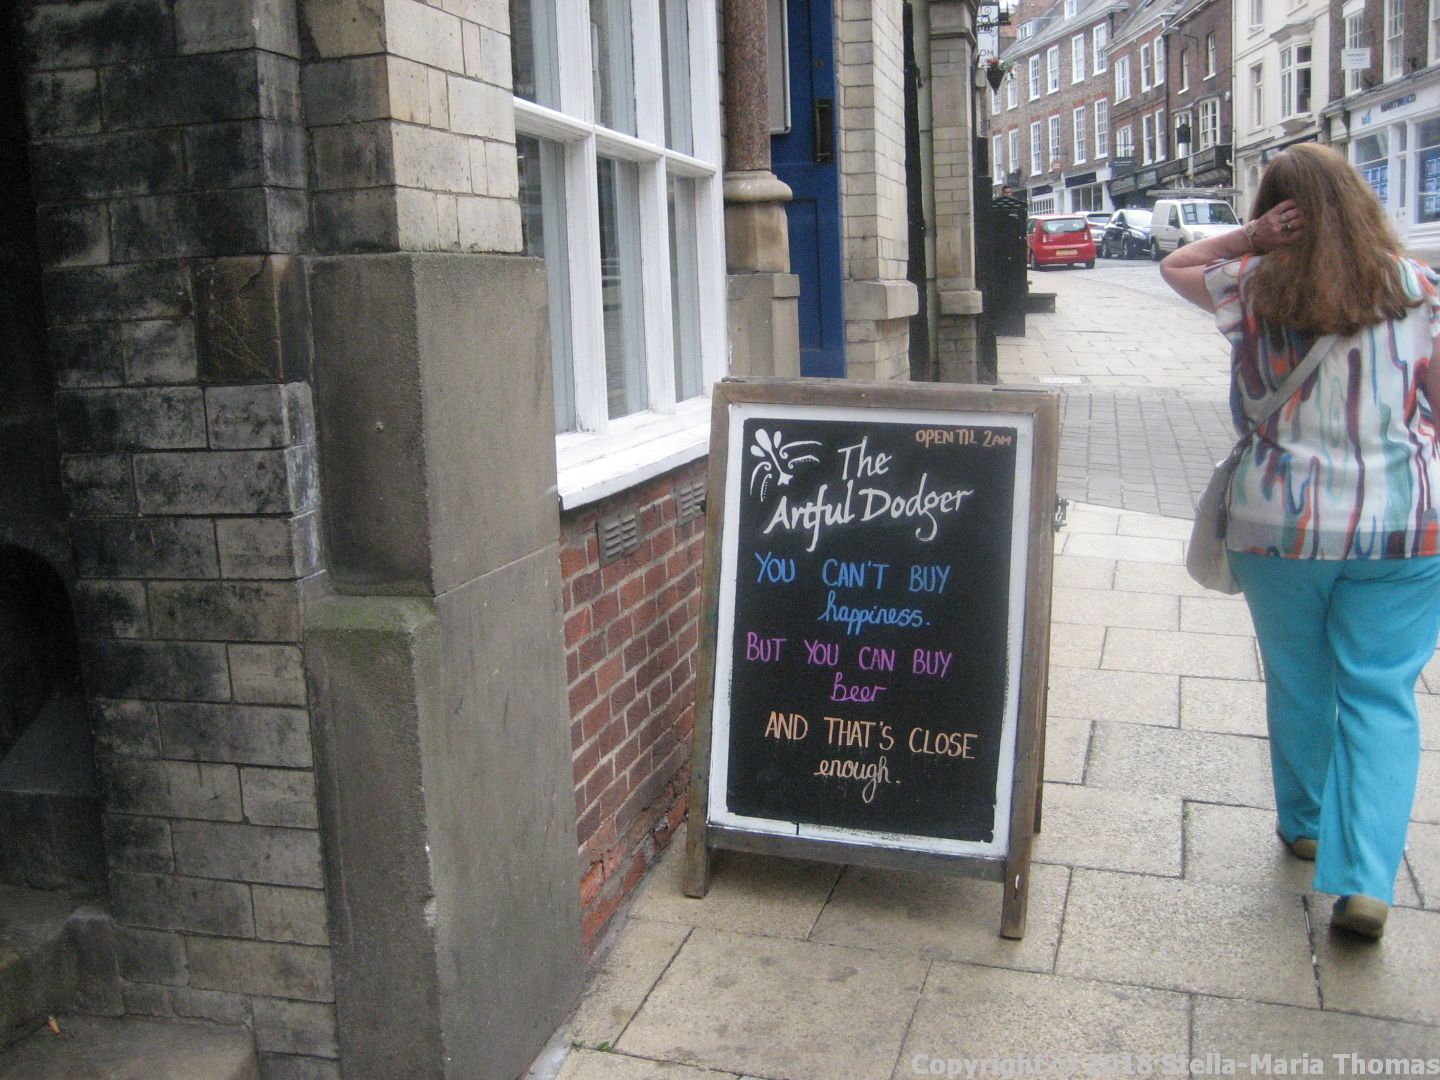 OPEN TIL 2AM
The
Artful Dodger
YOU CAN'T BUY
happiness.
BUT YOU CAN BUY
Beer
AND THAT'S CLOSE
enough.
Copyright © 2018 Stella-Maria Thomas